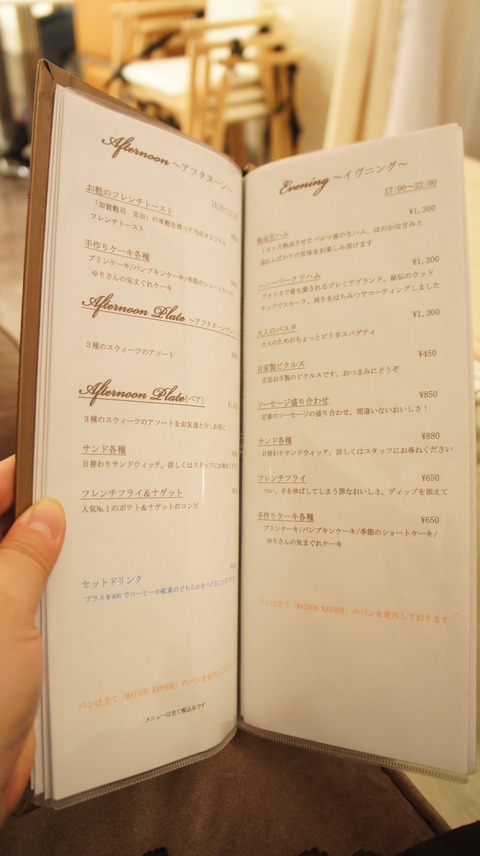 Afternoon ～アフタヌーン～
お麩のフレンチトースト
「加賀麩司　宮田」の車麩を使った当店オリジナル
フレンチトースト
手作りケーキ各種
プリンケーキ/パンプキンケーキ/季節のショートケーキ/
ゆりさんの気まぐれケーキ
Afternoon Plate
３種のスウィーツのアソート
Afternoon Plate(ペア)
３種のスウィーツのアソートをお友達と少しお得に
サンド各種
日替わりサンドウィッチ。詳しくはスタッフにお尋ね
フレンチフライ＆ナゲット
人気№１のポテト＆ナゲットのコンビ
セットドリンク
プラス￥400でコーヒーか紅茶のどちらかをつけることが
パンは全て「MAISON KAYSER」のパンを使用して
メニューは全て税込みです
Evening ～イヴニング～
17:00～22:00
熟成生ハム ¥1,300
１８ヶ月熟成させたパルマ産の生ハム。ほのかな甘みと
溢れんばかりの旨味をお楽しみ頂けます
ハニーベークドハム ¥1,300
アメリカで最も愛されるプレミアブランド。秘伝のウッド
チップでスモーク、周りをはちみつでコーティングしました
大人のパスタ ¥1,300
大人のためのちょっとピリ辛スパゲティ
自家製ピクルス ¥450
店長お手製のピクルスです。おつまみにどうぞ
ソーセージ盛り合わせ ¥850
定番のソーセージの盛り合わせ。間違いないおいしさ！
サンド各種 ¥880
日替わりサンドウィッチ。詳しくはスタッフにお尋ねください
フレンチフライ ¥650
つい、手を伸ばしてしまう罪なおいしさ。ディップを添えて
手作りケーキ各種 ¥650
プリンケーキ/パンプキンケーキ/季節のショートケーキ/
ゆりさんの気まぐれケーキ
パンは全て「MAISON KAYSER」のパンを使用しております